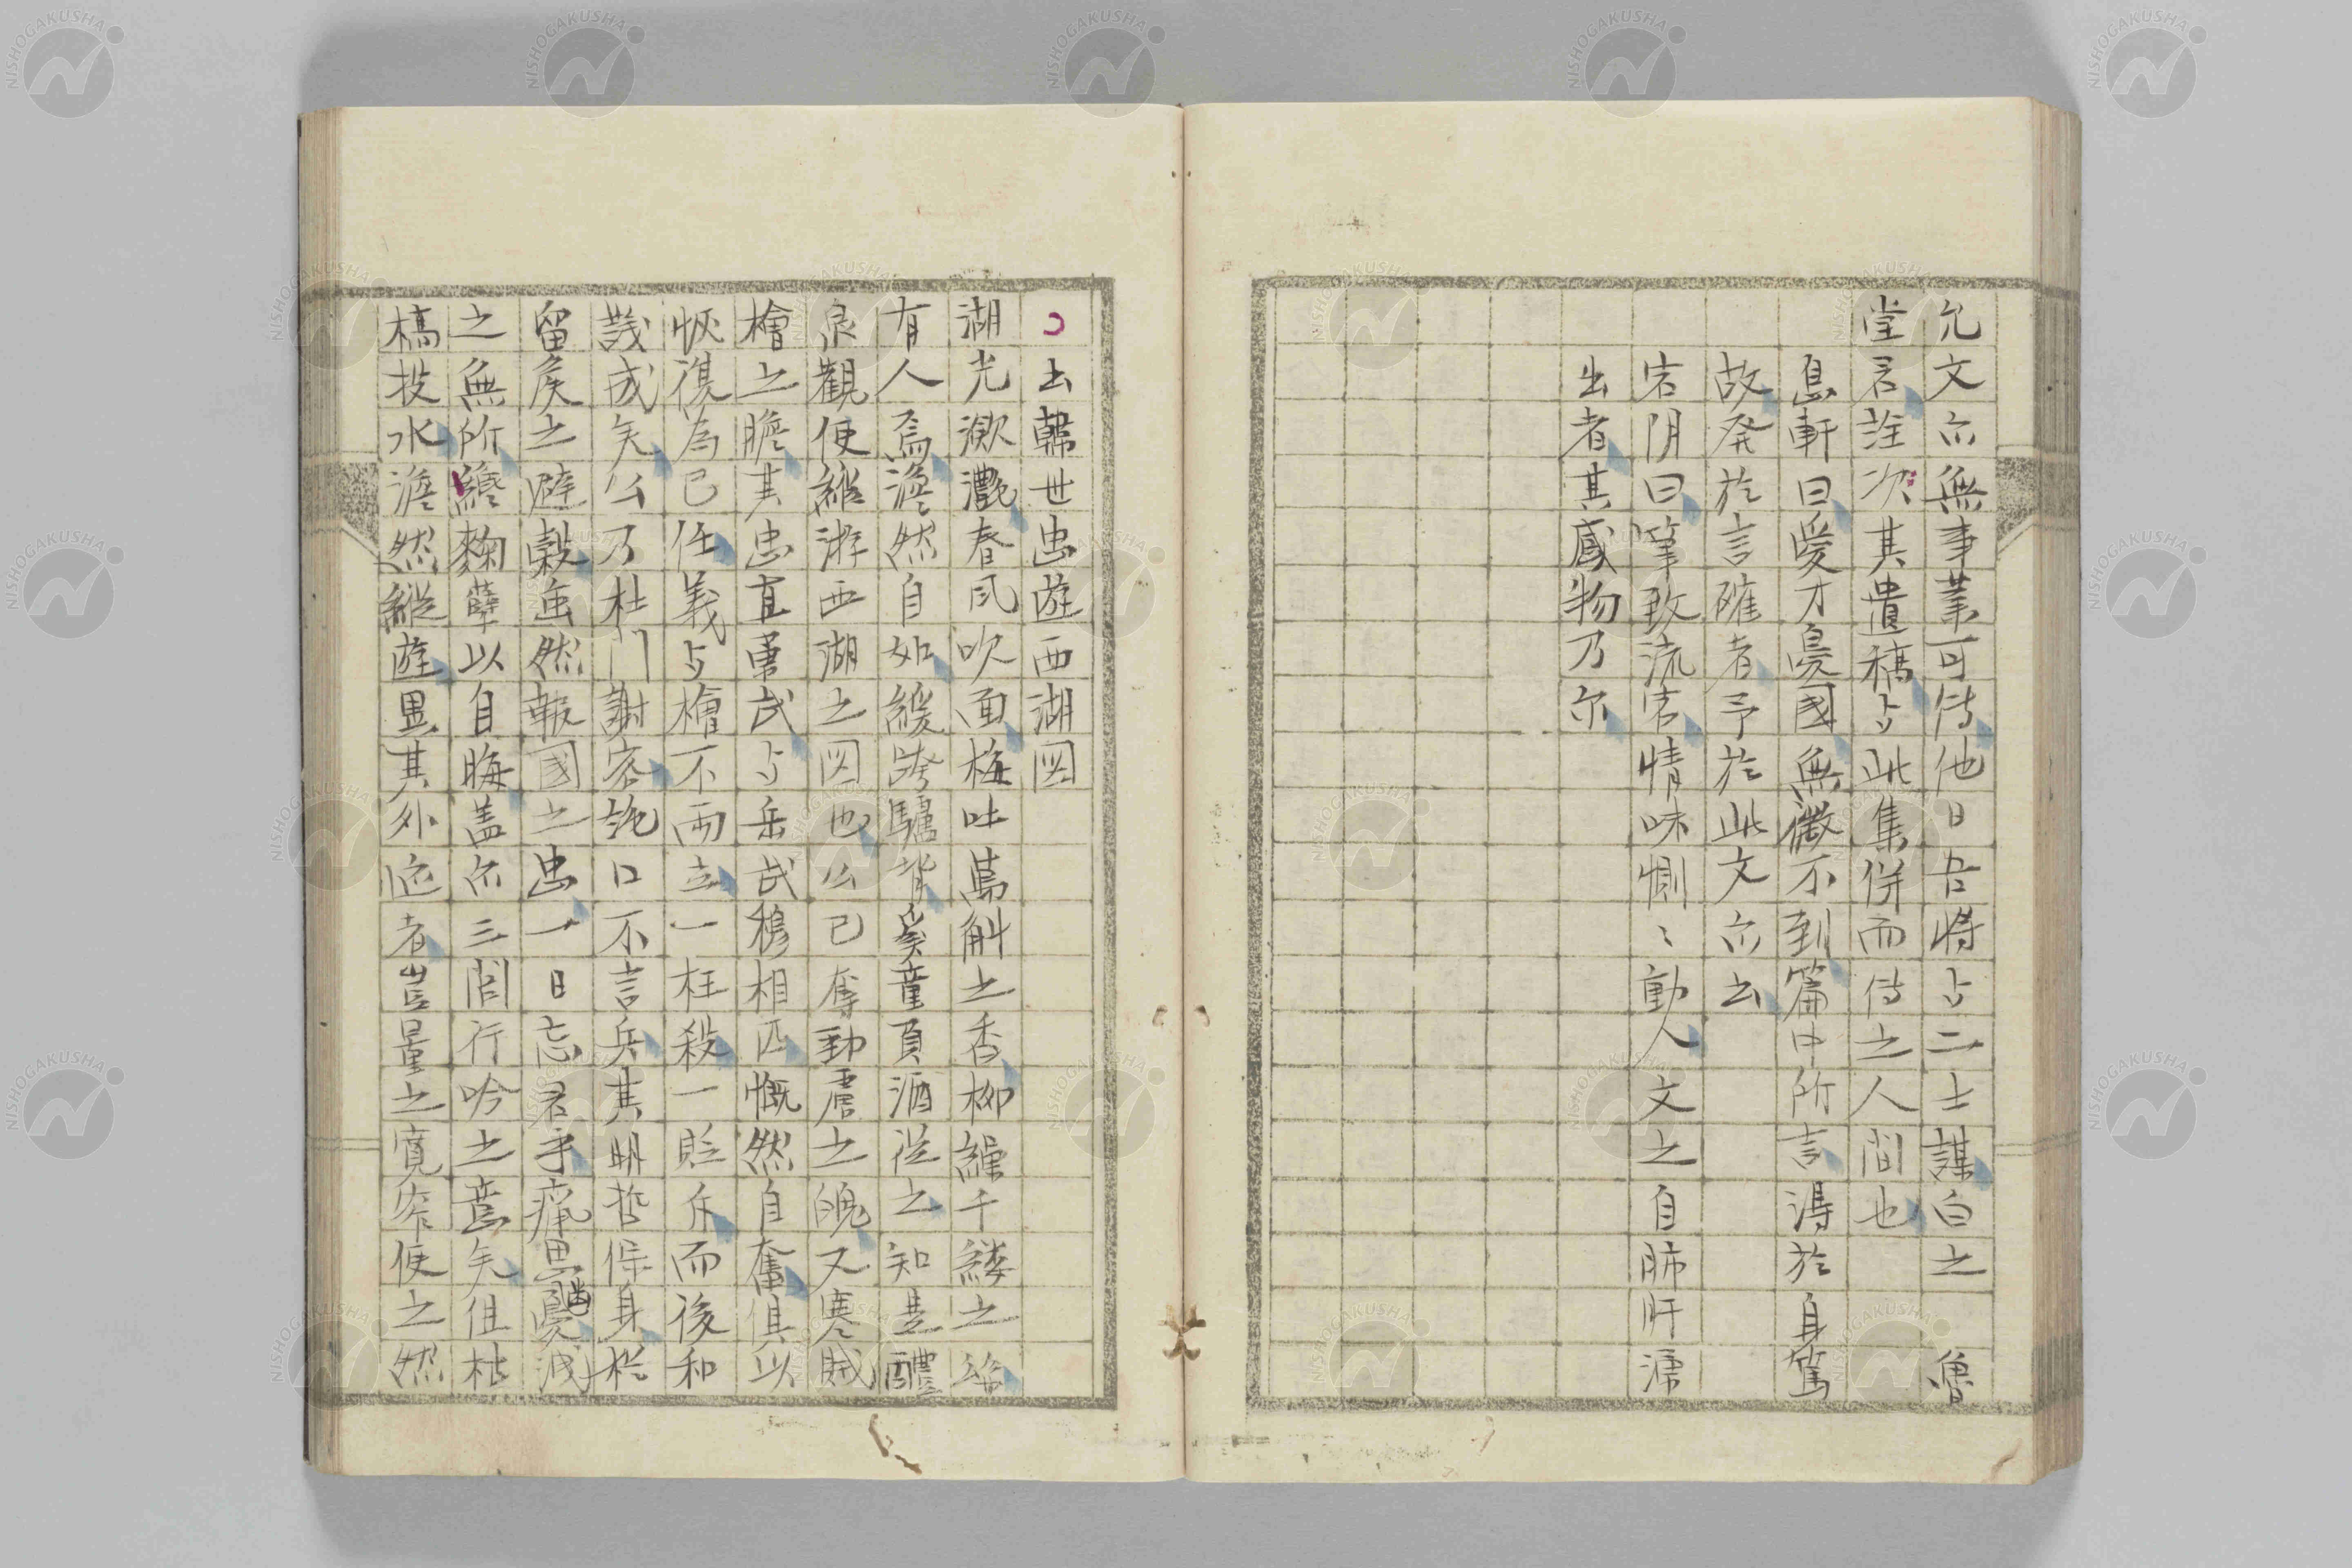 允文亦無事業可傳他日吾將与二士謀白之 魯
堂君詮次其遺稿与此集併而傳之人間也
息軒曰愛才憂國無微不到篇中所言得於身篤
故発於言確者予於此文亦云
宕阴曰筆致流宕情味惻〻動人 文之自肺肝漂
出者其感物乃尔
韓世忠遊西湖図
湖光瀲灔春风吹面梅吐萬斛之香柳繰千縷之
有人焉澹然自如緩跨驢背奚童負酒從之知是醴
泉觀使縱游西湖之図也公已奪勁虜之魄又寒賊
檜之膽其忠直勇武与岳武穆相匹慨然自奮俱以
恢復為己任義与檜不両立一枉殺一貶斥而後和
議成矣公乃杜門謝客絶口不言兵其明哲保身
留矦之避穀雖然報國之忠一日忘君乎痛思憂
之無所繼麴蘖以自晦盖亦三閭行吟之意矣但枯
槁投水澹然縱遊異其外迹者豈量之寛窄使之然